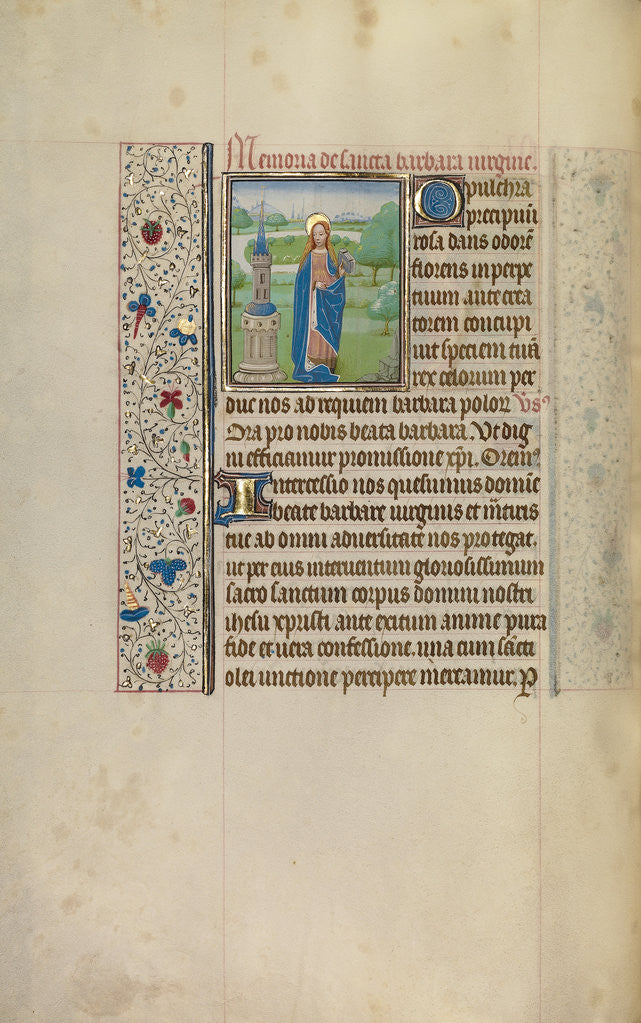 Memoria de sancta barbara uirgine.
O pulchra
precipuū
rosa dans odorē
florens in perpe
tuum ante crea
torem concupi
uit speciem tuā
rex celorum per
duc nos ad requiem barbara polorꝝ Vsꝰ
Ora pro nobis beata barbara. Vt dig
ni efficiamur promissione xp̄i. Oremꝰ
Intercessio nos quesumus domīe
beate barbare uirginis et m̄tiris
tue ab omni aduersitate nos protegat.
ut per eius interuentum gloriosissimum
sacro sanctum corpus domini nostri
ihesu xpristi ante exitum anime pura
fide et uera confessione. una cum sācti
olei unctione percipere mereamur. P